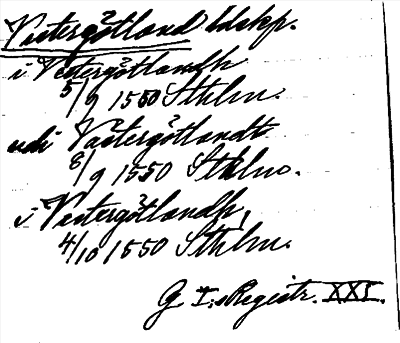 Vestergötland ldskp.
i Vestergötlandh
5/9 1550 Sthlm.
udi Vastergötlandt
8/9 1550 Sthlm.
i Vestergötlandh,
4/10 1550 Sthlm.
G. I:s Registr. XXI.